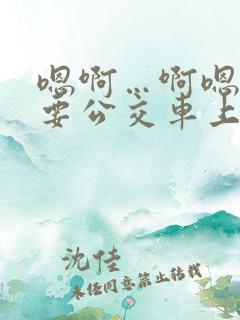 嗯啊…啊嗯
要公交车上
沈佳
未经同意禁止转载